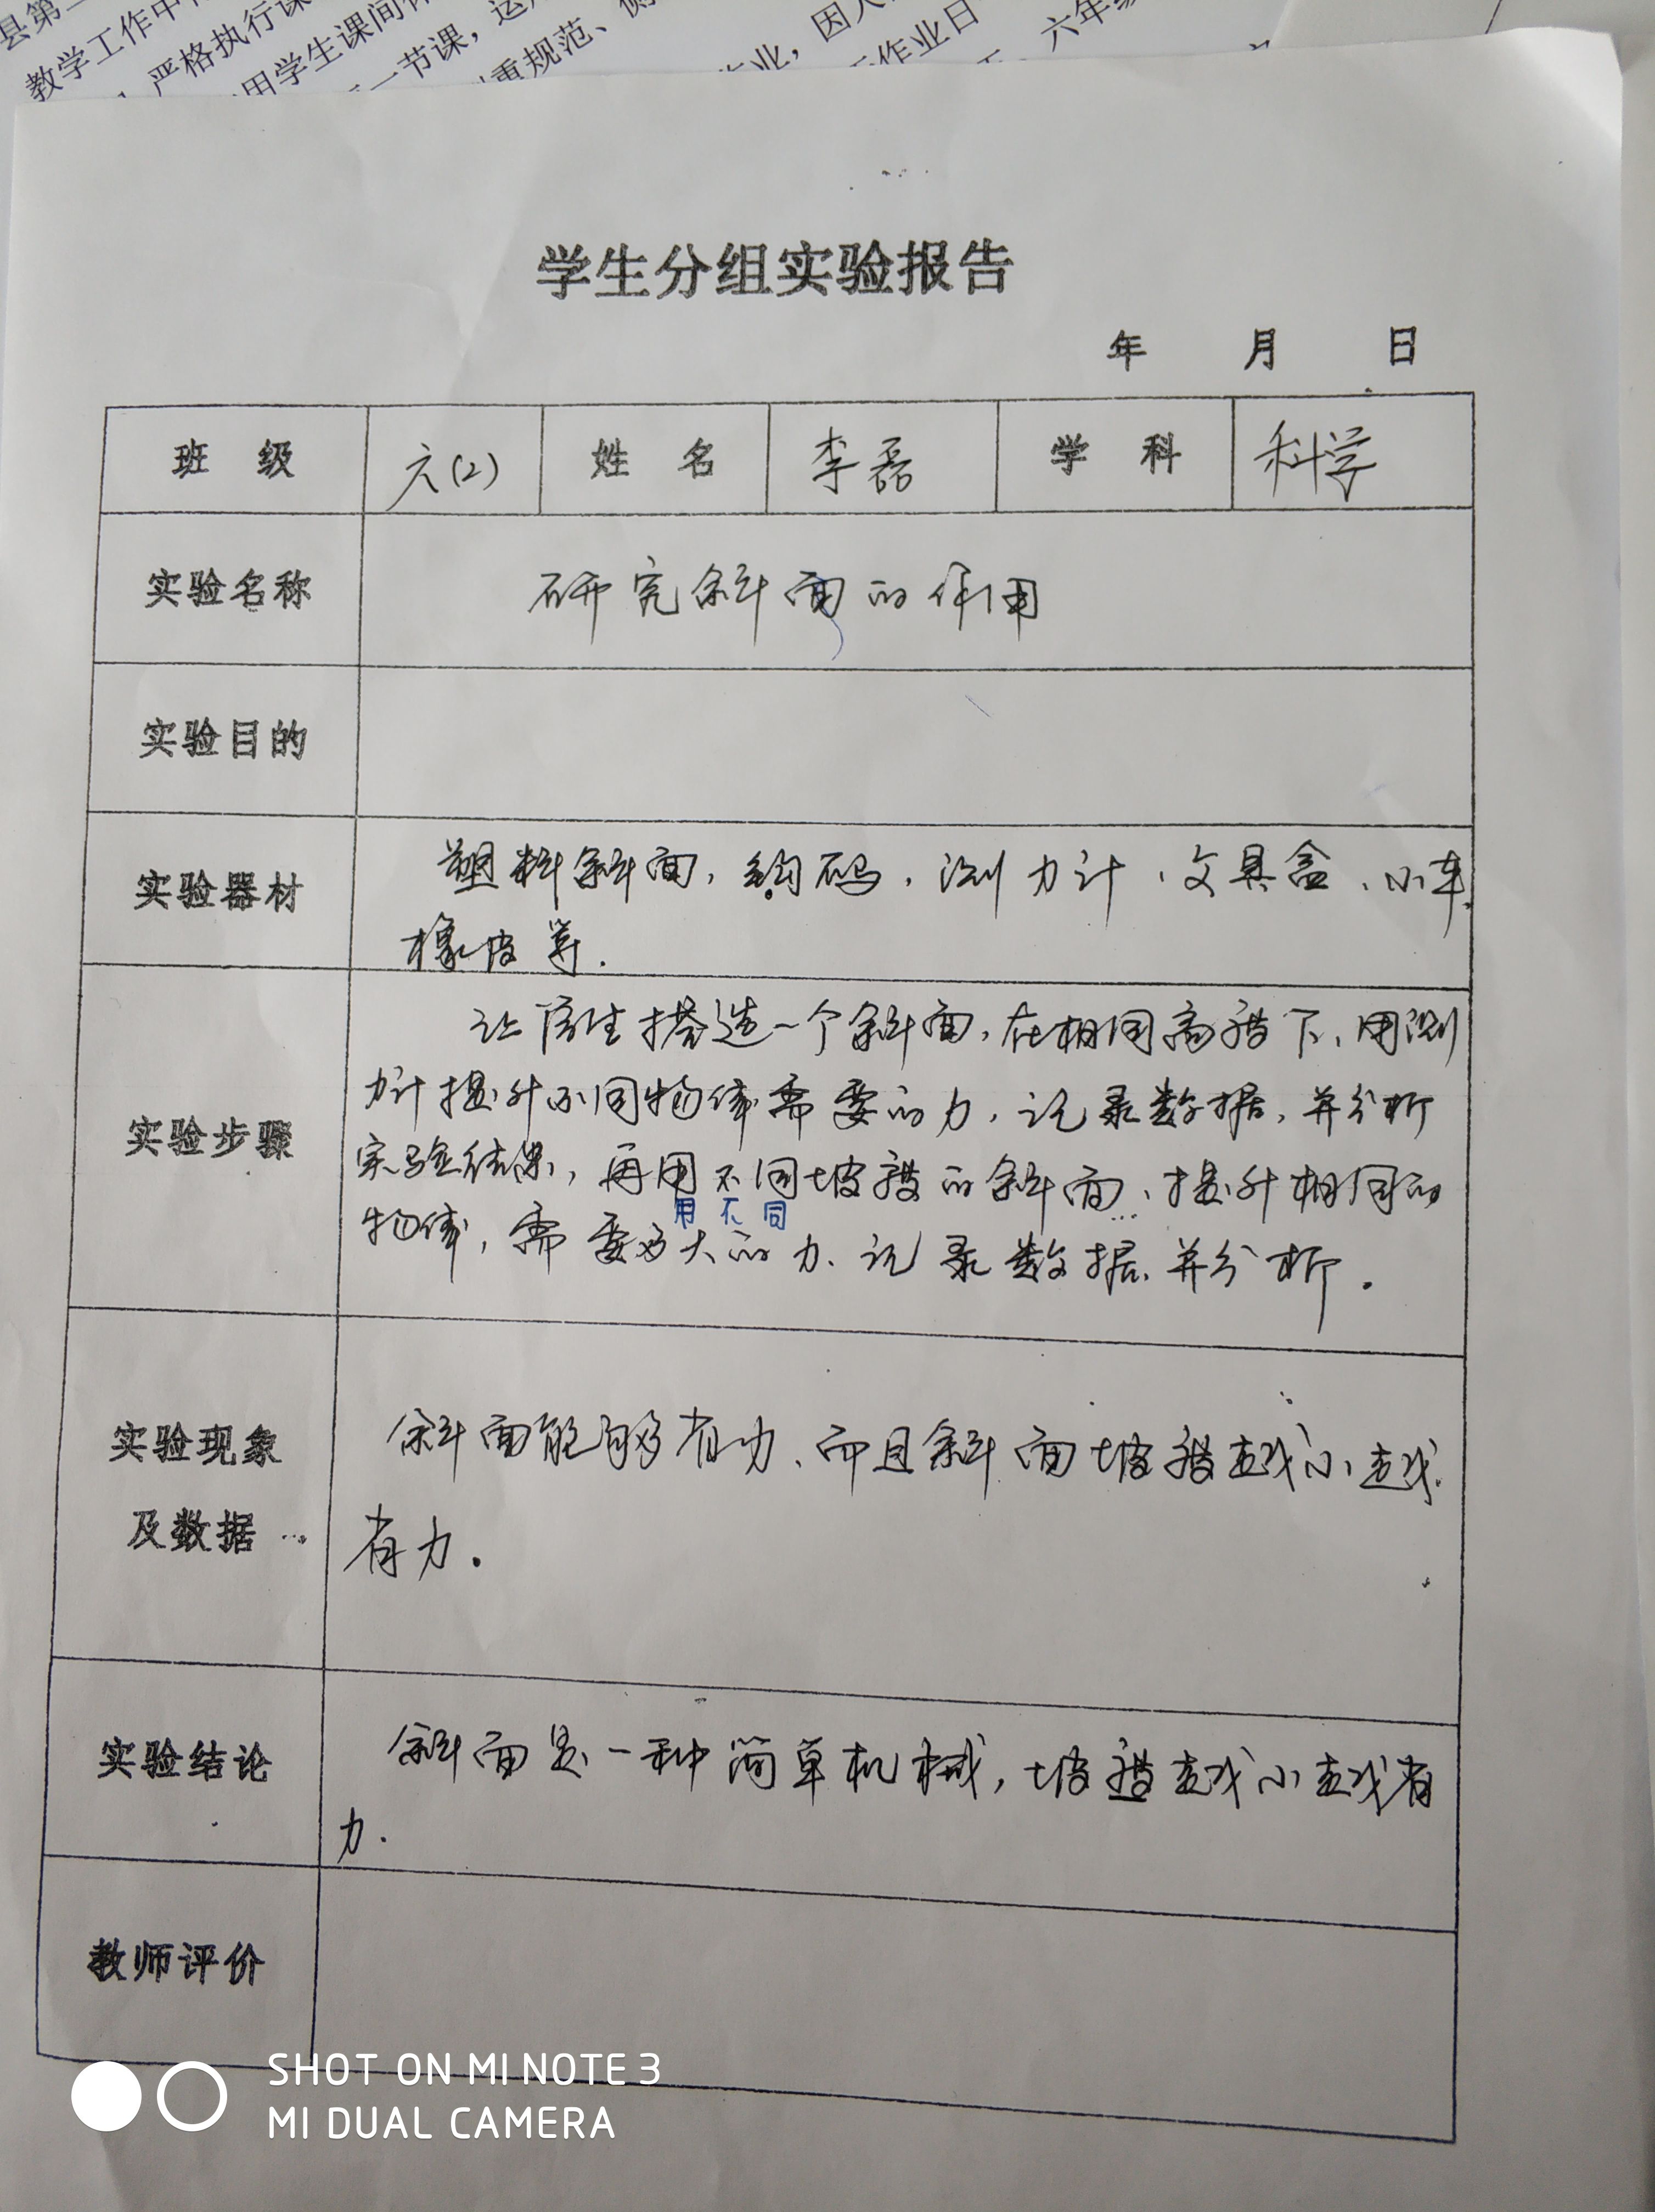 县第
教学工作中
严格执行课
用学生课间休
一节课，运
重规范、侧
业，因人
作业日
六年级
学生分组实验报告
年 月 日
班 级 六(2) 姓 名 李磊 学 科 科学
实验名称 研究斜面的作用
实验目的
实验器材 塑料斜面，钩码，测力计、文具盒、小车
橡皮等.
实验步骤 让学生搭造一个斜面，在相同高度下、用测
力计提升不同物体需要的力，记录数据，并分析
实验结果，再用不同坡度的斜面、提升相同的
用不同
物体，需要多大的力、记录数据、并分析.
实验现象
及数据
斜面能够省力、而且斜面坡度越小越
省力.
实验结论 斜面是一种简单机械，坡度越小越省
力.
教师评价
SHOT ON MI NOTE 3
MI DUAL CAMERA